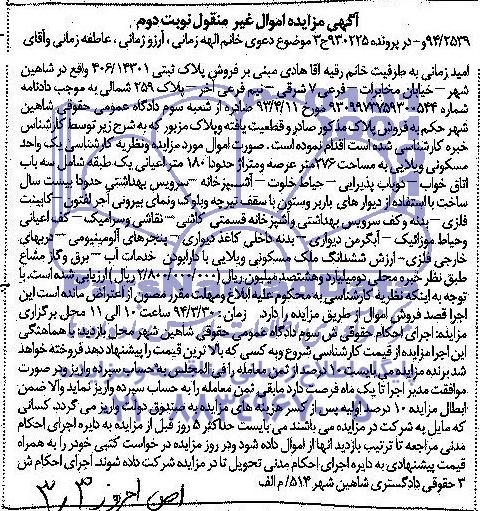 آگهی مزایده اموال غیر منقول نوبت دوم
۹۴/۲۵۳۹و- در پرونده ۹۳۰۲۲۵ج۳ موضوع دعوی خانم الهه زمانی ، آرزو زمانی ، عاطفه زمانی وآقای
امید زمانی به طرفیت خانم رقیه آقا هادی مبنی بر فروش پلاک ثبتی ۴۰۶/۱۴۳۰۱ واقع در شاهین
شهر – خیابان مخابرات – فرعی ۷ شرقی – نیم فرعی آخر – پلاک ۲۵۹ شمالی به موجب دادنامه
شماره ۹۳۰۹۹۷۳۷۵۹۳۰۰۵۴۴ مورخ ۹۳/۴/۱۱ صادره از شعبه سوم دادگاه عمومی حقوقی شاهین
شهر حکم به فروش پلاک مذکور صادر و قطعیت یافته وپلاک مزبور که به شرح زیر توسط کارشناس
خبره کارشناسی شده است اقدام نموده است . صورت اموال مورد مزایده ونظریه کارشناسی یک واحد
مسکونی ویلایی به مساحت ۲۷۶متر عرصه ومتراژ حدودا ۱۸۰ متر اعیانی یک طبقه شامل سه باب
اتاق خواب – دوباب پذیرایی – حیاط خلوت – آشپزخانه – سرویس بهداشتی حدودا بیست سال
ساخت با استفاده از دیوار های باربر وستون با سقف تیرچه وبلوک ونمای بیرونی آجر لفتون – کابینت
فلزی – بدنه وکف سرویس بهداشتی وآشپزخانه قسمتی کاشی – نقاشی وسرامیک – کف اعیانی
وحیاط موزائیک – آبگرمکن دیواری – بدنه داخلی کاغذ دیواری – پنجرهای آلومینیومی – دربهای
خارجی فلزی- ارزش ششدانگ ملک مسکونی ویلایی با دارابودن خدمات آب – برق وگاز مشاع
طبق نظر خبره محلی دومیلیارد وهشتصد میلیون ریال (۲/۸۰۰/۰۰۰/۰۰۰ ریال) ارزیابی شده است. با
توجه به اینکه نظریه کارشناسی به محکوم علیه ابلاغ ومهلت مقرر مصون از اعتراض مانده است این
اجرا قصد فروش اموال از طریق مزایده را دارد زمان ۹۴/۳/۳۰ ساعت ۱۰ الی ۱۱ محل برگزاری
مزایده: اجرای احکام حقوقی ش سوم دادگاه عمومی حقوقی شاهین شهر محل بازدید با هماهنگی
این اجرا مزایده از قیمت کارشناسی شروع وبه کسی که بالا ترین قیمت را پیشنهاد دهد فروخته خواهد
شد برنده مزایده می بایست ۱۰ درصد از ثمن معامله را فی المجلس به حساب سپرده واریز ودر صورت
موافقت مدیر اجرا تا یک ماه فرصت دارد مابقی ثمن معامله را به حساب سپرده واریز نماید والا ضمن
ابطال مزایده ۱۰ درصد اولیه پس از کسر هزینه های مزایده به صندوق دولت واریز می گردد. کسانی
که مایل به شرکت در مزایده می باشند می بایست حداکثر ۵ روز قبل از مزایده به دایره اجرای احکام
مدنی مراجعه تا ترتیب بازدید انها از اموال داده شود ودر روز مزایده در خواست کتبی خود را به همراه
قیمت پیشنهادی به دایره اجرای احکام مدنی تحویل تا در مزایده شرکت داده شوند. اجرای احکام ش
۳ حقوقی دادگستری شاهین شهر ۵۱۴/م الف